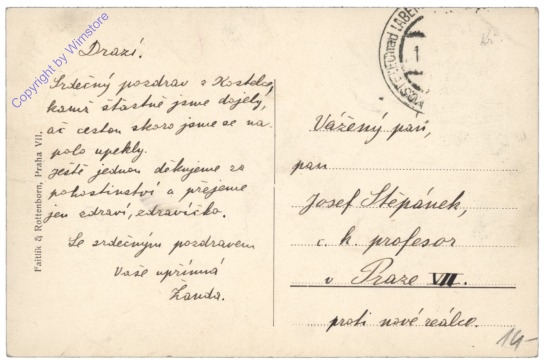 Drazí.
Srdečný pozdrav z Kostelce,
kamž šťastně jsme dojely,
ač cestou skoro jsme se na-
polo upekly.
Ještě jednou děkujeme za
pohostinství a přejeme
jen zdraví, zdravíčko.
Se srdečným pozdravem
Vaše upřímná
Fanda.
Faitlík & Rottenborn, Praha VII.
Copyright by Wimstore
KOSTELEC nad LABEM
1
Vážený pan,
pan
Josef Štěpánek,
c. k. profesor
v Praze VII.
proti nové reálce.
14-